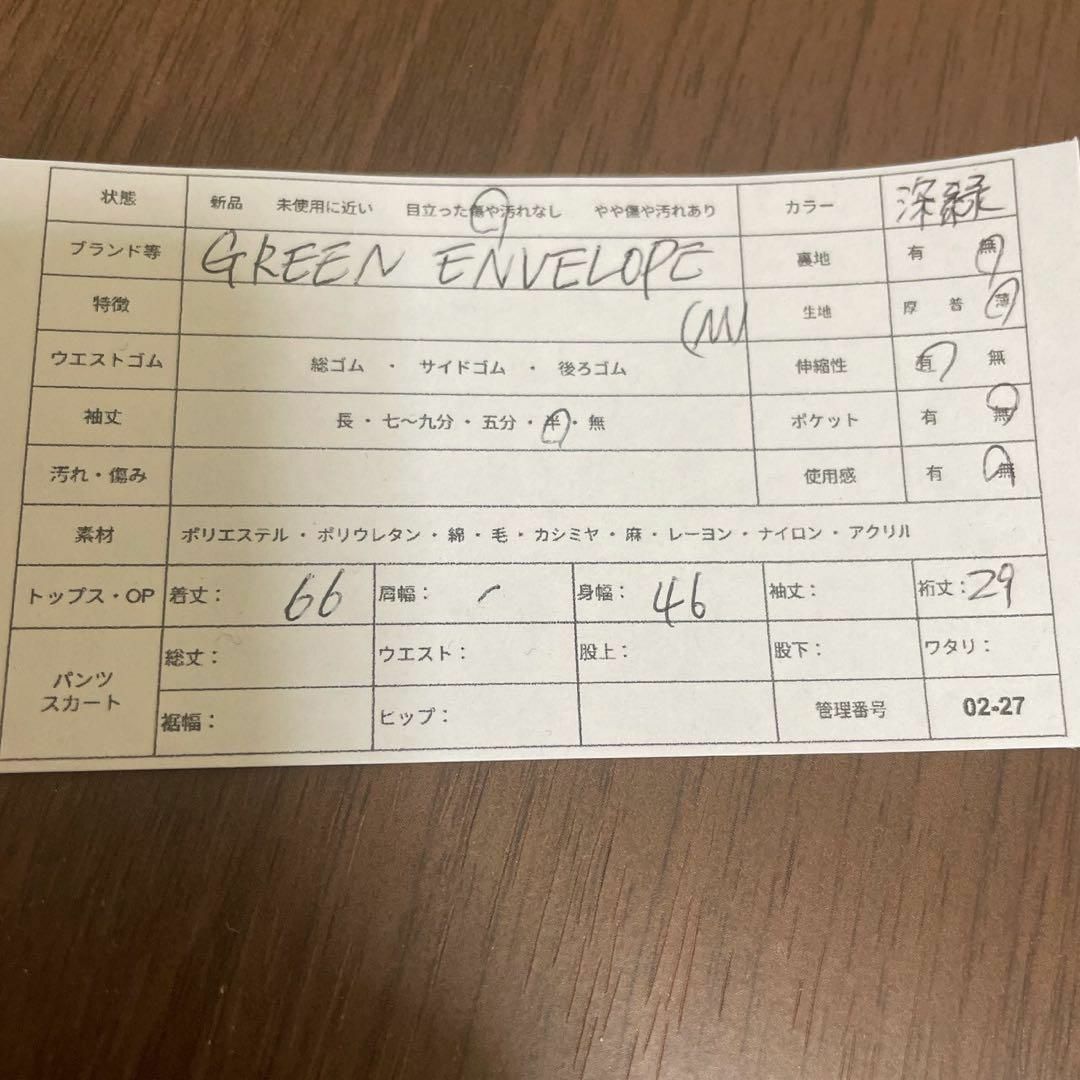 状態 新品 未使用に近い 目立った傷や汚れなし やや傷や汚れあり カラー 深緑
ブランド等 GREEN ENVELOPE 裏地 有 無
特徴 (M) 生地 厚 普 薄
ウエストゴム 総ゴム ・ サイドゴム ・ 後ろゴム 伸縮性 有 無
袖丈 長・七～九分・五分・半・無 ポケット 有 無
汚れ・傷み 使用感 有 無
素材 ポリエステル・ポリウレタン・綿・毛・カシミヤ・麻・レーヨン・ナイロン・アクリル
トップス・OP 着丈: 66 肩幅: 身幅: 46 袖丈: 裄丈:29
パンツ スカート 総丈: ウエスト: 股上: 股下: ワタリ:
裾幅: ヒップ: 管理番号 02-27